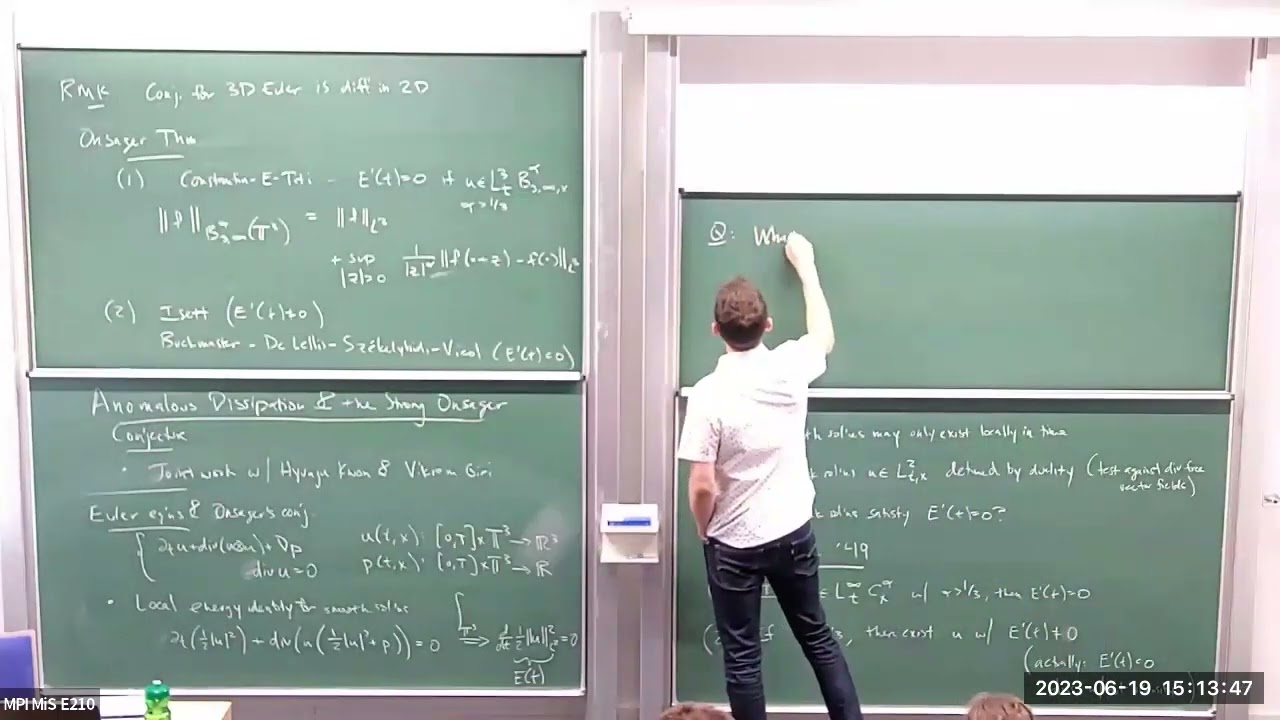 RMK Conj. for 3D Euler is diff in 2D
Onsager Thm
(1) Constantin-E-Titi - E'(t)=0 if u∈L³_t B^α_{3,∞,x}
α>1/3
‖f‖_{B^α_{3,∞}(𝕋³)} = ‖f‖_{L³}
+ sup_{|z|>0} 1/|z|^α ‖f(·+z) - f(·)‖_{L³}
(2) Isett (E'(t)≠0)
Buckmaster - De Lellis - Székelyhidi - Vicol (E'(t)<0)
Anomalous Dissipation & the Strong Onsager
Conjecture
• Joint work w/ Hyunju Kwon & Vikram Giri
Euler eq'ns & Onsager's conj.
∂_t u + div(u⊗u) + ∇p
div u = 0
u(t,x): [0,T]×𝕋³ → ℝ³
p(t,x): [0,T]×𝕋³ → ℝ
• Local energy identity for smooth sol'ns
∂_t(½|u|²) + div(u(½|u|²+p)) = 0 ∫_{𝕋³} ⟹ d/dt ½‖u‖²_{L²} = 0
E(t)
Q:
sol'ns may only exist locally in time
sol'ns u∈L²_{t,x} defined by duality (test against div free
vector fields)
sol'ns satisfy E'(t)=0?
'49
L^∞_t C^α_x w/ α>1/3, then E'(t)=0
, then exist u w/ E'(t)≠0
(actually: E'(t)<0
2023-06-19 15:13:47
MPI MiS E210